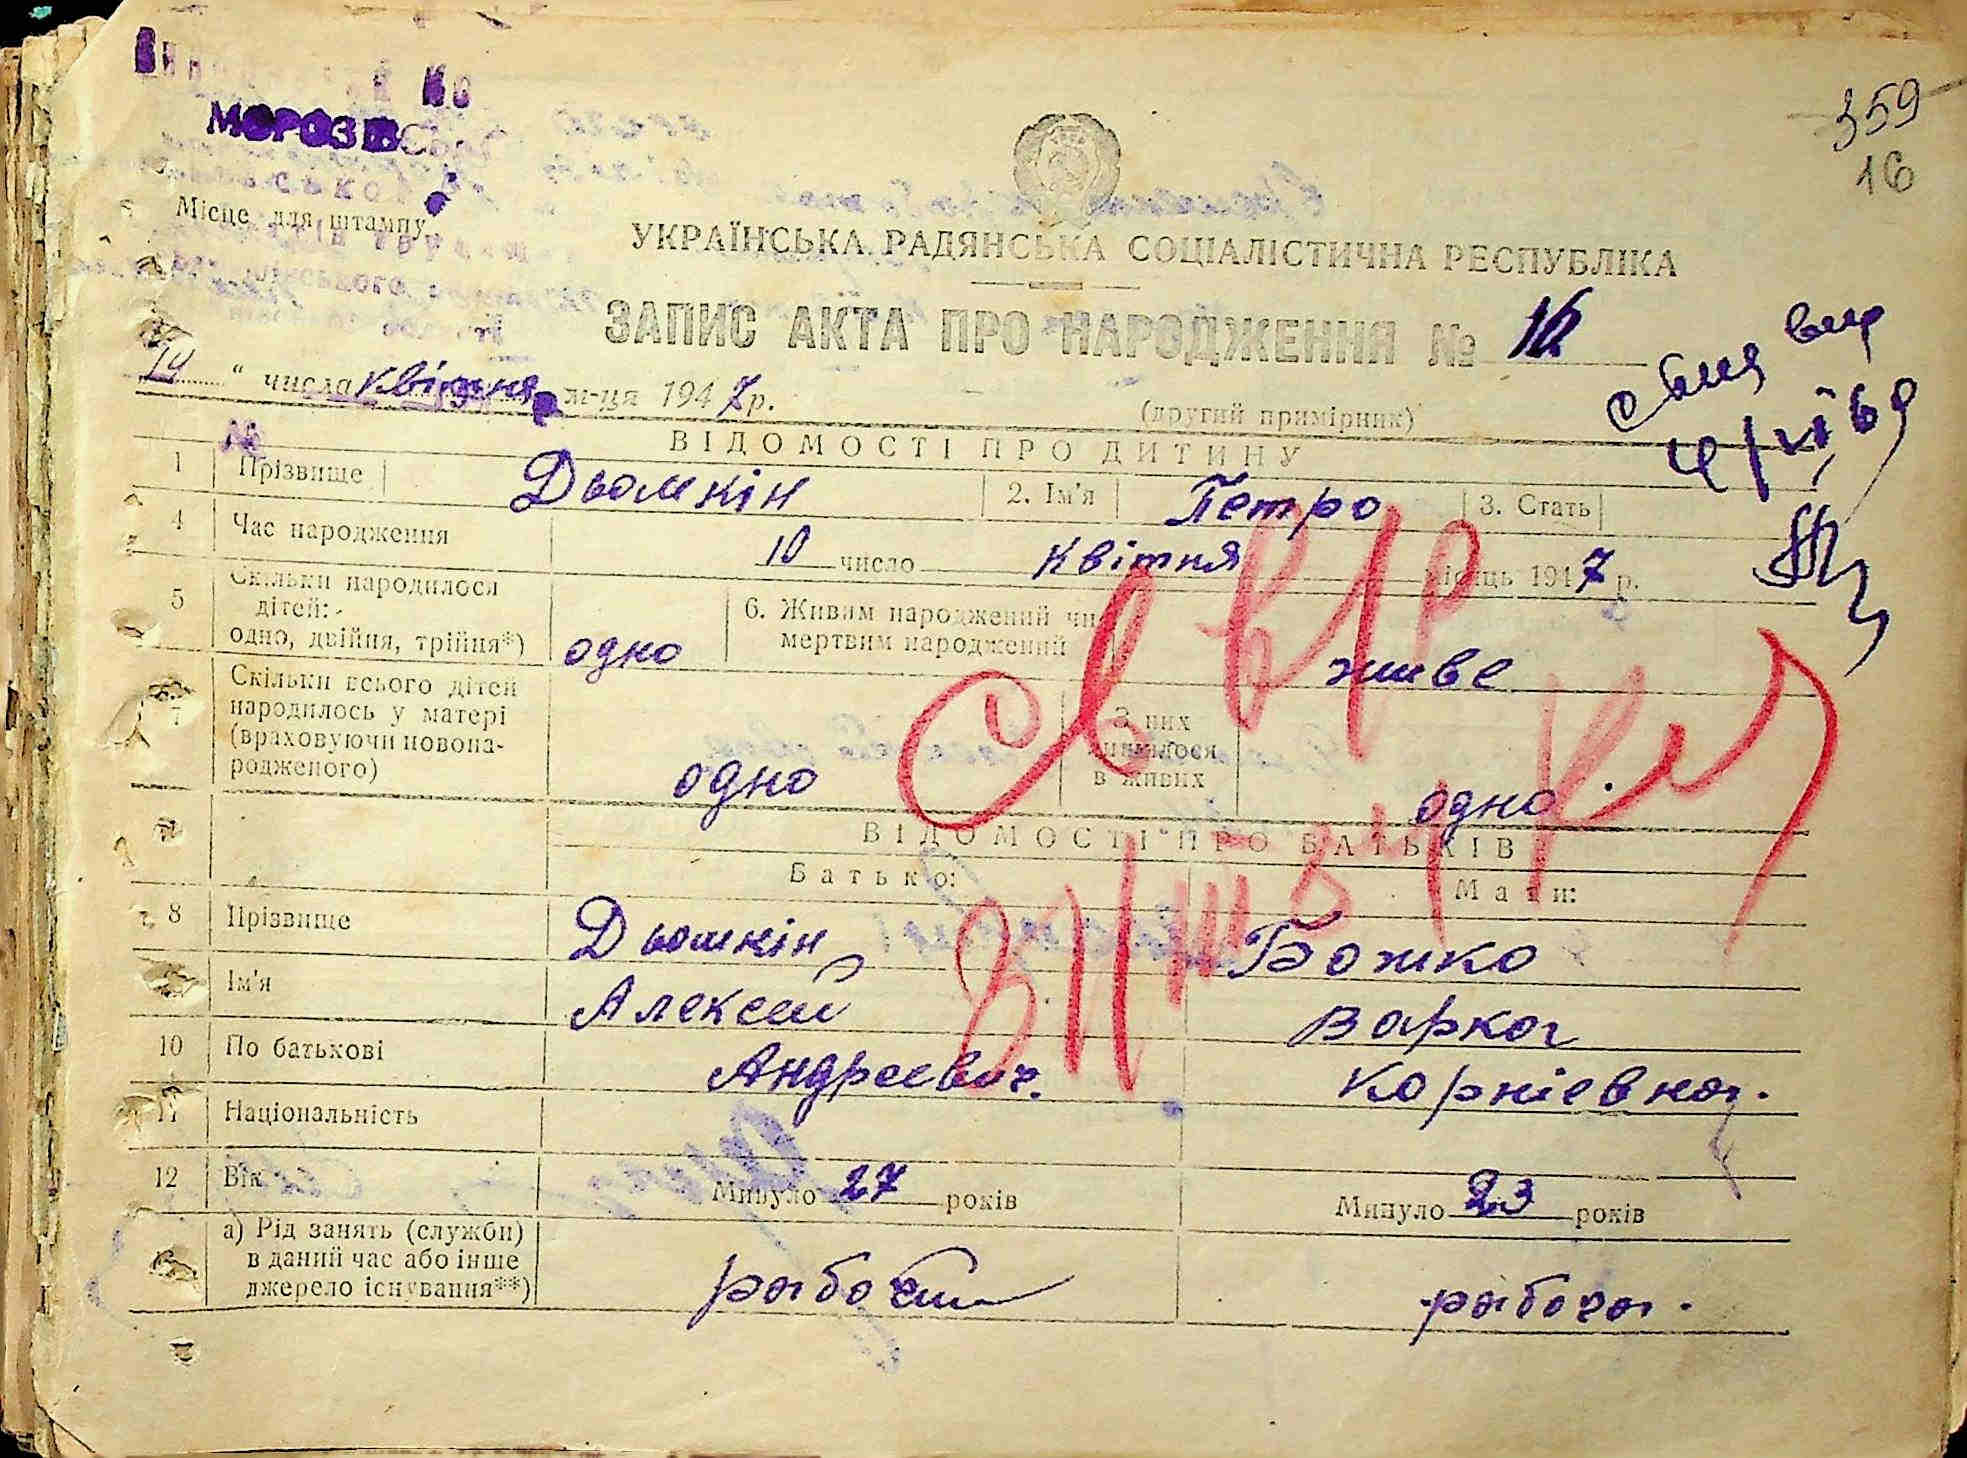 359
16
МОРОЗ
Місце для штампу
УКРАЇНСЬКА РАДЯНСЬКА СОЦІАЛІСТИЧНА РЕСПУБЛІКА
ЗАПИС АКТА ПРО НАРОДЖЕННЯ № 16
" числа квітня м-ця 1947 р.
(другий примірник)
ВІДОМОСТІ ПРО ДИТИНУ
1 Прізвище Дьомкін 2. Ім'я Петро 3. Стать
4 Час народження 10 число квітня місяць 1947 р.
5 Скільки народилося дітей: одно, двійня, трійня*) одно 6. Живим народжений чи мертвим народжений живе
7 Скільки всього дітей народилось у матері (враховуючи новонародженого) одно З них лишилося в живих одно
ВІДОМОСТІ ПРО БАТЬКІВ
Батько: Мати:
8 Прізвище Дьомкін Божко
Ім'я Алексей Варка
10 По батькові Андреевич. Корніевна.
11 Національність
12 Вік Минуло 27 років Минуло 23 років
а) Рід занять (служби) в даний час або інше джерело існування**) рабочий рабоча.